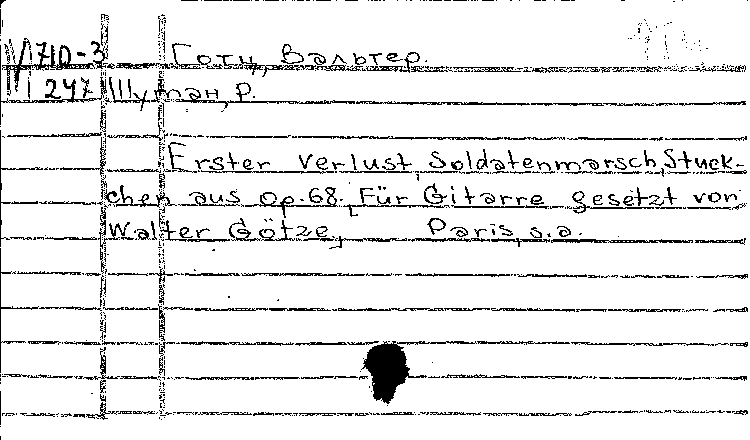 М 710-3 Готц, Вальтер.
247 Шуман, Р.
Erster Verlust, Soldatenmarsch, Stuck-
chen aus op. 68. Für Gitarre gesetzt von
Walter Götze, Paris, s.a.